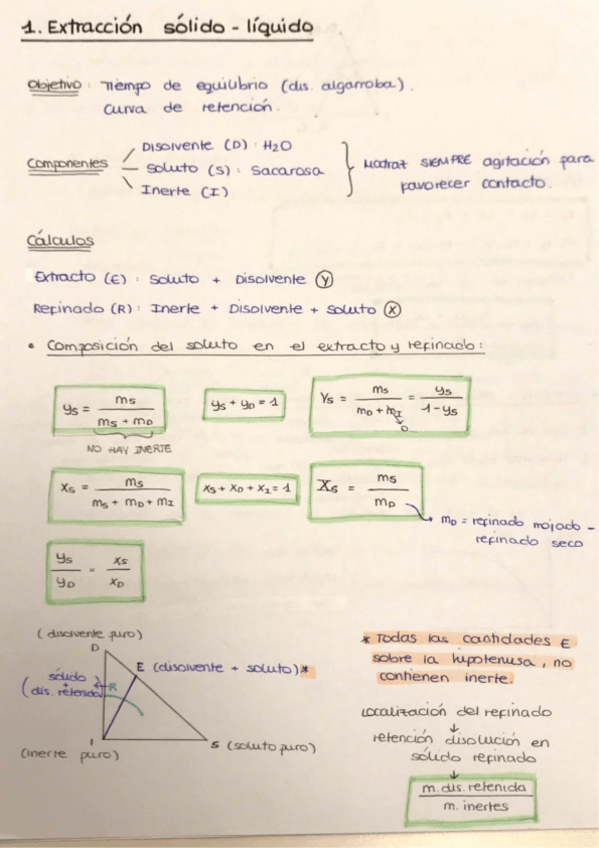 1. Extracción sólido - líquido
Objetivo: Tiempo de equilibrio (dis. algarroba).
Curva de retención.
Componentes
Disolvente (D): H₂O
Soluto (S): Sacarosa
Inerte (I)
Matraz SIEMPRE agitación para
favorecer contacto.
Cálculos
Extracto (E): Soluto + Disolvente (Y)
Refinado (R): Inerte + Disolvente + Soluto (X)
• Composición del soluto en el extracto y refinado:
ys = ms / (ms + mD)
NO HAY INERTE
ys + yD = 1
Ys = ms / (mD + mI) = ys / (1 - ys)
0
xs = ms / (ms + mD + mI)
xs + xD + xI = 1
Xs = ms / mD
mD = refinado mojado -
refinado seco
ys / yD = xs / xD
(disolvente puro)
D
E (disolvente + soluto)*
sólido
+
(dis. retenida)
R
I
(inerte puro)
S (soluto puro)
* Todas las cantidades E
sobre la hipotenusa, no
contienen inerte.
Localización del refinado
↓
retención disolución en
sólido refinado
↓
m. dis. retenida / m. inertes